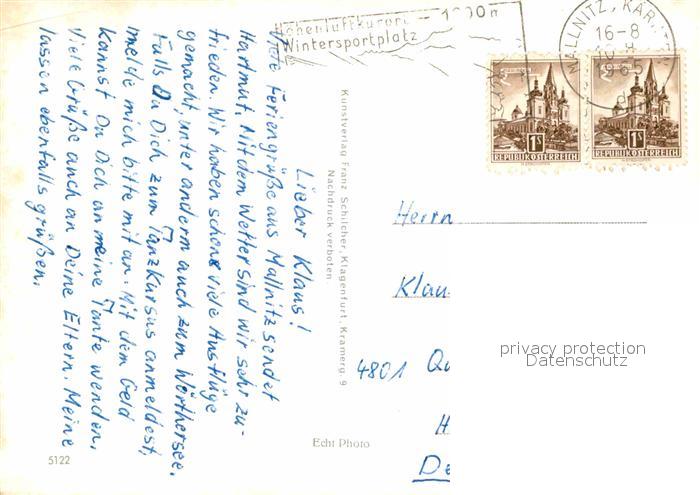 Höhenluftkurort - 1200m
Wintersportplatz
MALLNITZ, KÄRNTEN
16-8
1965
1S
REPUBLIK ÖSTERREICH
1S
REPUBLIK ÖSTERREICH
Lieber Klaus!
Viele Feriengrüße aus Mallnitz sendet
Hartmut. Mit dem Wetter sind wir sehr zu-
frieden. Wir haben schone viele Ausflüge
gemacht, unter anderm auch zum Wörthersee.
Falls Du Dich zum Tanzkursus anmeldest,
melde mich bitte mit an. Mit dem Geld
kannst Du Dich an meine Tante wenden.
Viele Grüße auch an Deine Eltern. Meine
lassen ebenfalls grüßen.
Kunstverlag Franz Schilcher, Klagenfurt, Kramerg. 9
Nachdruck verboten
Herrn
Klau
4801 Qu
H
De
privacy protection
Datenschutz
Echt Photo
5122